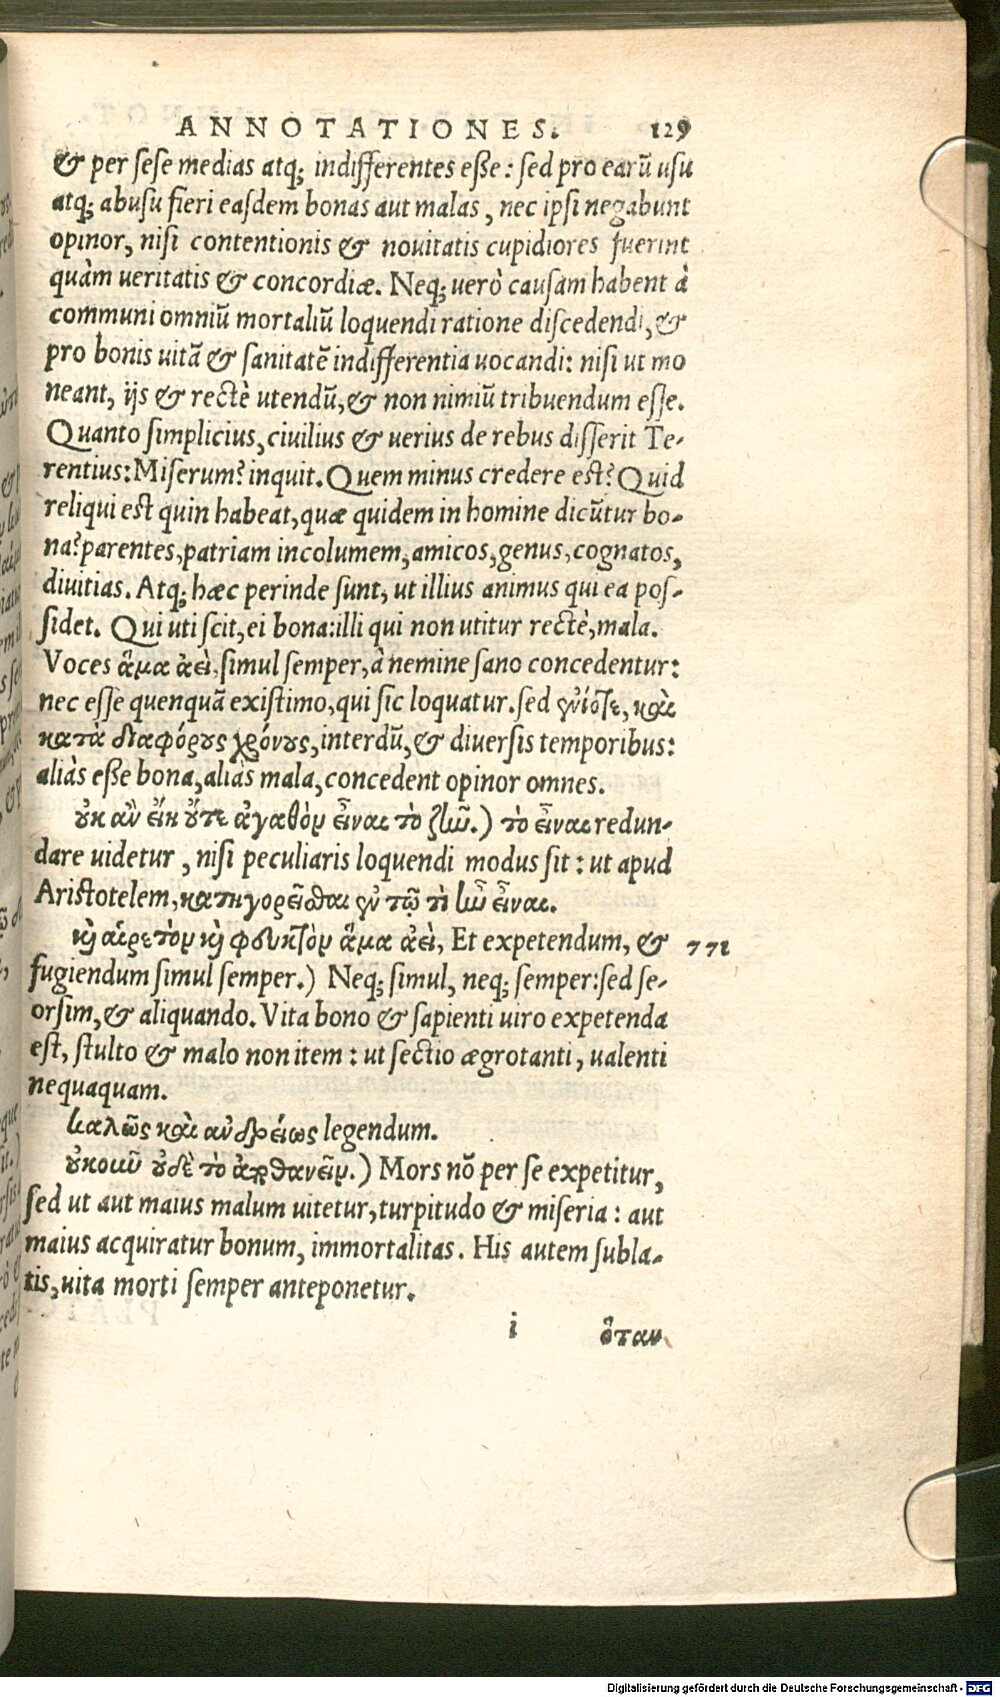 ANNOTATIONES. 129
& per sese medias atq; indifferentes esse: sed pro earũ usu
atq; abusu fieri easdem bonas aut malas, nec ipsi negabunt
opinor, nisi contentionis & nouitatis cupidiores fuerint
quàm ueritatis & concordiæ. Neq; uerò causam habent à
communi omniũ mortaliũ loquendi ratione discedendi, &
pro bonis uitã & sanitatẽ indifferentia uocandi: nisi ut mo
neant, ijs & rectè utendũ, & non nimiũ tribuendum esse.
Quanto simplicius, ciuilius & uerius de rebus disserit Te-
rentius: Miserum? inquit. Quem minus credere est? Quid
reliqui est quin habeat, quæ quidem in homine dicũtur bo-
na? parentes, patriam incolumem, amicos, genus, cognatos,
diuitias. Atq; hæc perinde sunt, ut illius animus qui ea pos-
sidet. Qui uti scit, ei bona: illi qui non utitur rectè, mala.
Voces ἅμα ἀεὶ, simul semper, à nemine sano concedentur:
nec esse quenquã existimo, qui sic loquatur. sed ἐνίοτε, καὶ
κατὰ διαφόρους χρόνους, interdũ, & diuersis temporibus:
aliàs esse bona, aliàs mala, concedent opinor omnes.
οὐκ ἂν εἴη οὔτε ἀγαθὸν εἶναι τὸ ζῆν.) τὸ εἶναι redun-
dare uidetur, nisi peculiaris loquendi modus sit: ut apud
Aristotelem, κατηγορεῖσθαι ἐν τῷ τὶ ἦν εἶναι.
καὶ αἱρετὸν καὶ φευκτὸν ἅμα ἀεὶ, Et expetendum, & 771
fugiendum simul semper.) Neq; simul, neq; semper: sed se-
orsim, & aliquando. Vita bono & sapienti uiro expetenda
est, stulto & malo non item: ut sectio ægrotanti, ualenti
nequaquam.
καλῶς καὶ ἀνδρείως legendum.
οὐκοῦν οὐδὲ τὸ ἀποθανεῖν.) Mors nõ per se expetitur,
sed ut aut maius malum uitetur, turpitudo & miseria: aut
maius acquiratur bonum, immortalitas. His autem subla-
tis, uita morti semper anteponetur.
i ὅταν
Digitalisierung gefördert durch die Deutsche Forschungsgemeinschaft - DFG